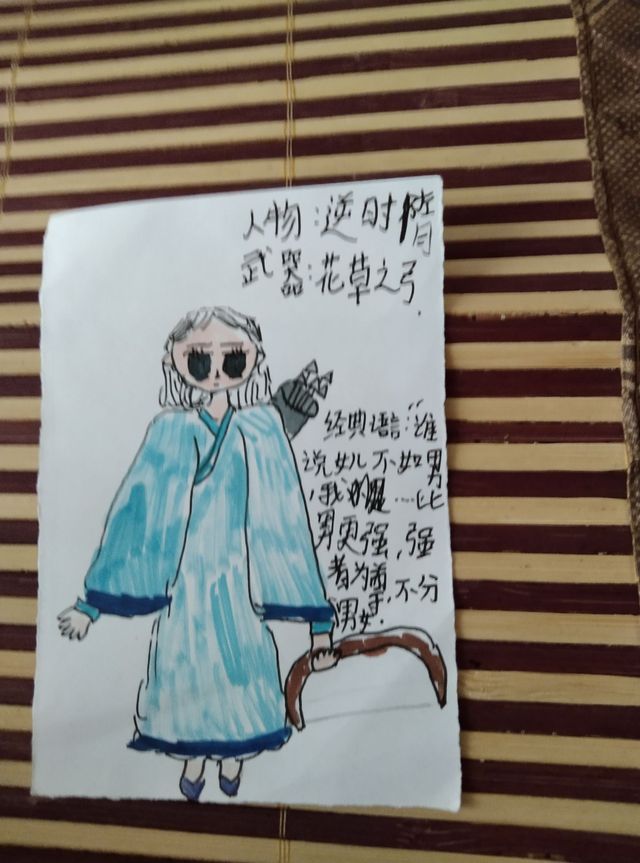 人物:逆时
武器:花草之弓.
经典语言:“谁
说女儿不如男
,我……比
男更强,强
者为,不分
男女.